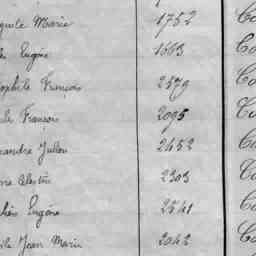 Marie 1752 Co
Eugène 1663 Co
ophile François 2579 Co
François 2095 Co
xandre Julien 2452 Co
Célestin 2303 Co
Eugène 2541 Co
Jean Marie 2042 Co